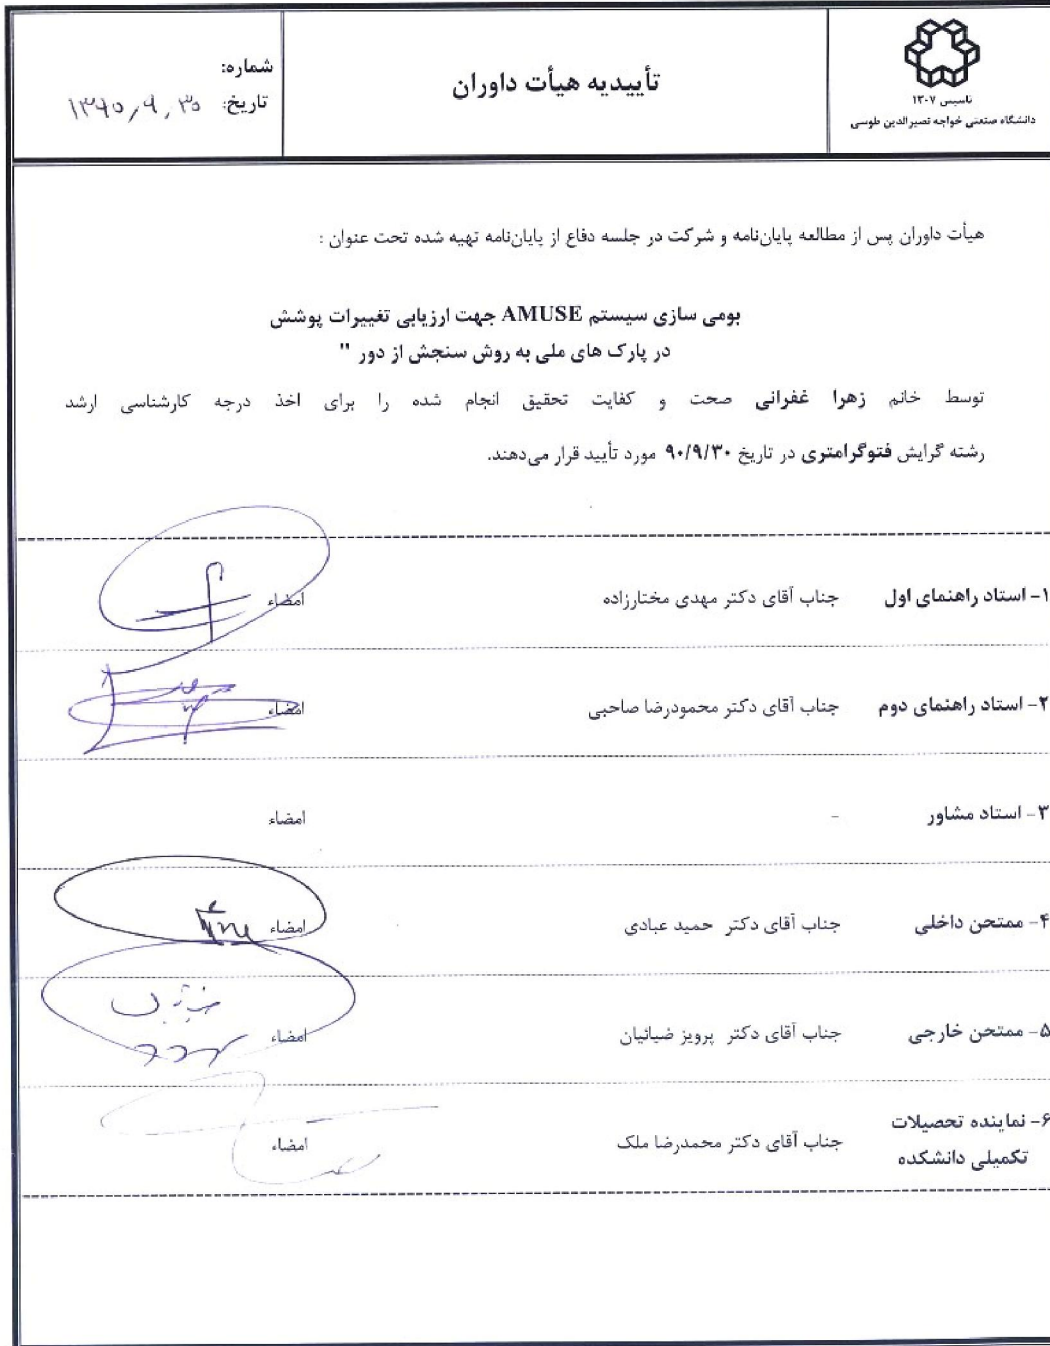 تاسیس ۱۳۰۷
دانشگاه صنعتی خواجه نصیرالدین طوسی
تأییدیه هیأت داوران
شماره:
تاریخ: ۱۳۹۰/۹/۳۰
هیأت داوران پس از مطالعه پایان‌نامه و شرکت در جلسه دفاع از پایان‌نامه تهیه شده تحت عنوان :
بومی سازی سیستم AMUSE جهت ارزیابی تغییرات پوشش
در پارک های ملی به روش سنجش از دور "
توسط خانم زهرا غفرانی صحت و کفایت تحقیق انجام شده را برای اخذ درجه کارشناسی ارشد
رشته گرایش فتوگرامتری در تاریخ ۹۰/۹/۳۰ مورد تأیید قرار می‌دهند.
۱- استاد راهنمای اول جناب آقای دکتر مهدی مختارزاده امضاء
۲- استاد راهنمای دوم جناب آقای دکتر محمودرضا صاحبی امضاء
۳- استاد مشاور - امضاء
۴- ممتحن داخلی جناب آقای دکتر حمید عبادی امضاء
۵- ممتحن خارجی جناب آقای دکتر پرویز ضیائیان امضاء
۶- نماینده تحصیلات
تکمیلی دانشکده جناب آقای دکتر محمدرضا ملک امضاء